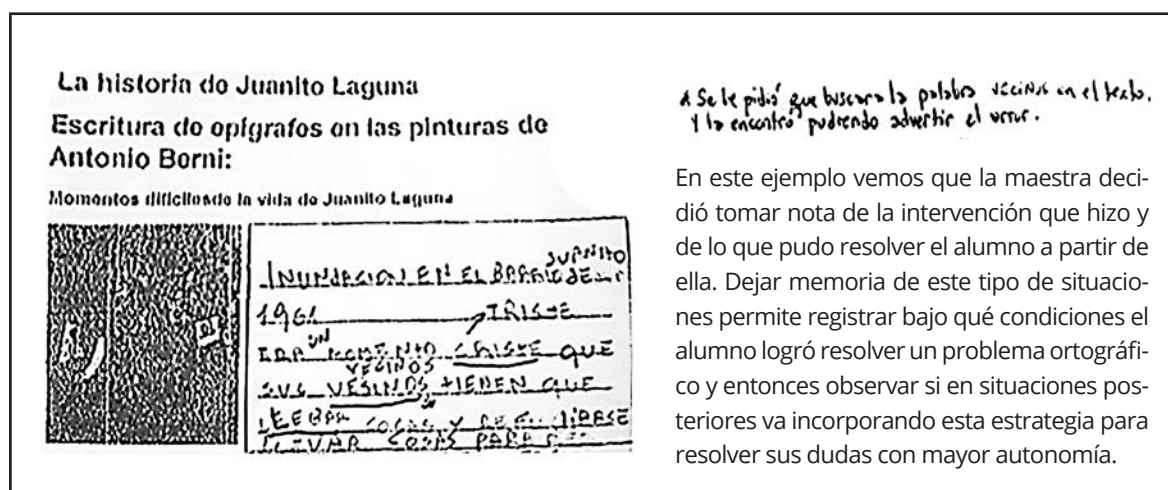 La historia de Juanito Laguna
Escritura de epígrafos en las pinturas de
Antonio Borni:
Momentos dificilesde la vida de Juanito Laguna
JUANITO
INUNDACION EN EL BARRIO DE
1961 TRISTE
ERA UN MOMENTO CRISTE QUE
VECINOS
SUS VESINOS TIENEN QUE
COSAS Y
COSAS PARA
A Se le pidió que buscara la palabra vecinos en el texto.
Y la encontró pudiendo advertir el error.
En este ejemplo vemos que la maestra deci-
dió tomar nota de la intervención que hizo y
de lo que pudo resolver el alumno a partir de
ella. Dejar memoria de este tipo de situacio-
nes permite registrar bajo qué condiciones el
alumno logró resolver un problema ortográfi-
co y entonces observar si en situaciones pos-
teriores va incorporando esta estrategia para
resolver sus dudas con mayor autonomía.